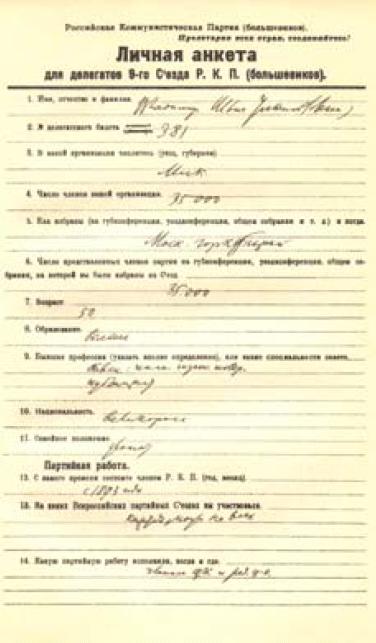 Российская Коммунистическая Партия (большевиков).
Пролетарии всех стран, соединяйтесь!
Личная анкета
для делегатов 9-го С'езда Р. К. П. (большевиков).
1. Имя, отчество и фамилия
2. № делегатского билета 381
3. В какой организации числитесь (уезд, губерния)
Моск
4. Число членов вашей организации. 35 000
5. Как избраны (на губконференции, уездконференции, общем собрании и т. д.) и когда.
Моск.
6. Число представленных членов партии на губконференции, уездконференции, общем со-
брании, на которой вы были избраны на С'езд
35 000
7. Возраст
50
8. Образование.
9. Бывшая профессия (указать вполне определенно), или какие специальности знаете.
10. Национальность. великоросс
11. Семейное положение
женат
Партийная работа.
12. С какого времени состоите членом Р. К. П. (год, месяц).
с 1893 года
13. На каких Всероссийских партийных С'ездах вы участвовали.
14. Какую партийную работу исполняли, когда и где.